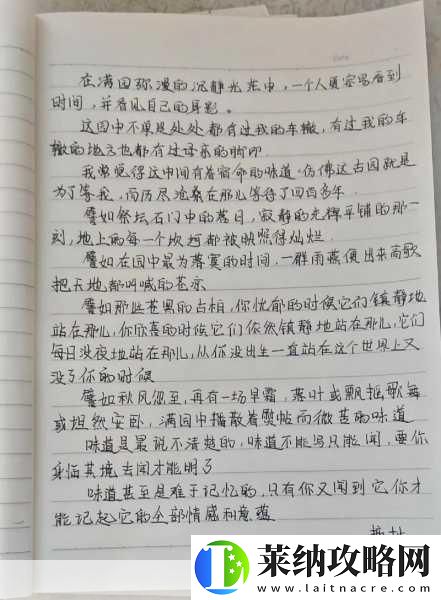 在满园弥漫的沉静光芒中，一个人更容易看到
时间，并看见自己的身影。
这园中不单是处处都有过我的车辙，有过我的车
辙的地方也都有过母亲的脚印
我常觉得这中间有着宿命的味道：仿佛这古园就是
为了等我，而历尽沧桑在那儿等待了四百多年
譬如祭坛石门中的落日，寂静的光辉平铺的那一
刻，地上的每一个坎坷都被映照得灿烂
譬如在园中最为落寞的时间，一群雨燕便出来高歌
把天地都叫喊的苍凉
譬如那些苍黑的古柏，你忧郁的时候它们镇静地
站在那儿，你欣喜的时候它们依然镇静地站在那儿，它们
每日没夜地站在那儿，从你没出生一直站在这个世界上又
没了你的时候
譬如秋风忽至，再有一场早霜，落叶或飘摇歌舞
或坦然安卧，满园中播散着熨帖而微苦的味道
味道是最说不清楚的，味道不能写只能闻，要你
身临其境去闻才能明了
味道甚至是难于记忆的，只有你又闻到它你才
能记起它的全部情感和意蕴
莱纳攻略网
www.laitnacre.com